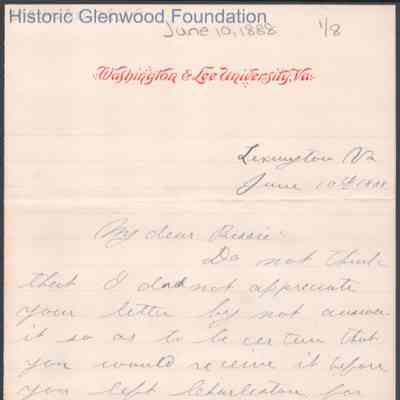 Historic Glenwood Foundation
June 10, 1888 1/8
Washington & Lee University, Va.
Lexington Va
June 10th 1888
My dear Bessie:
Do not think
that I did not appreciate
your letter by not answer
it so as to be certain that
you would receive it before
you left Charleston for